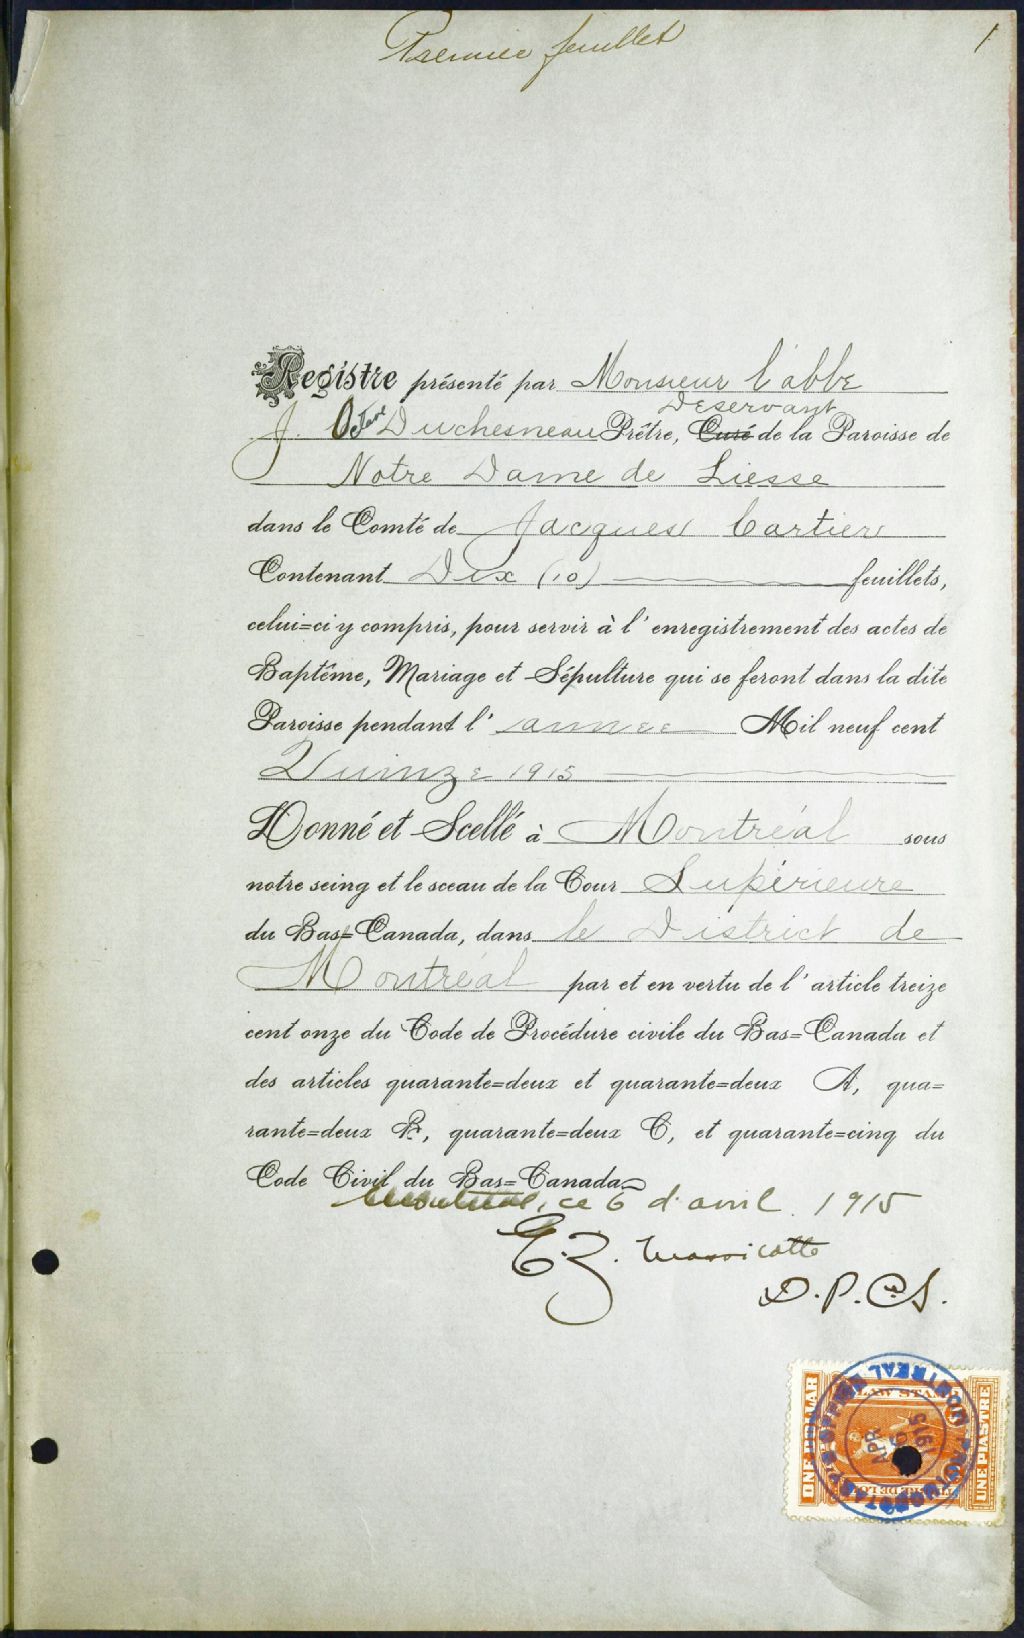 Premier feuillet
1
Registre présenté par Monsieur l'abbé
Deservant
J. Octave Duchesneau Prêtre, Curé de la Paroisse de
Notre Dame de Liesse
dans le Comté de Jacques Cartier
Contenant Dix (10) feuillets,
celui=ci y compris, pour servir à l'enregistrement des actes de
Baptême, Mariage et Sépulture qui se feront dans la dite
Paroisse pendant l'année Mil neuf cent
Quinze 1915
Donné et Scellé à Montréal sous
notre seing et le sceau de la Cour Supérieure
du Bas=Canada, dans le District de
Montréal par et en vertu de l'article treize
cent onze du Code de Procédure civile du Bas=Canada et
des articles quarante=deux et quarante=deux A, qua=
rante=deux B, quarante=deux C, et quarante=cinq du
Code Civil du Bas=Canada
Montréal, ce 6 d'avril 1915
E. Z. Massicotte
D.P.C.S.
ONE DOLLAR
LAW STAMP
UNE PIASTRE
PROTHONOTARY'S OFFICE MONTREAL
APR 6 1915